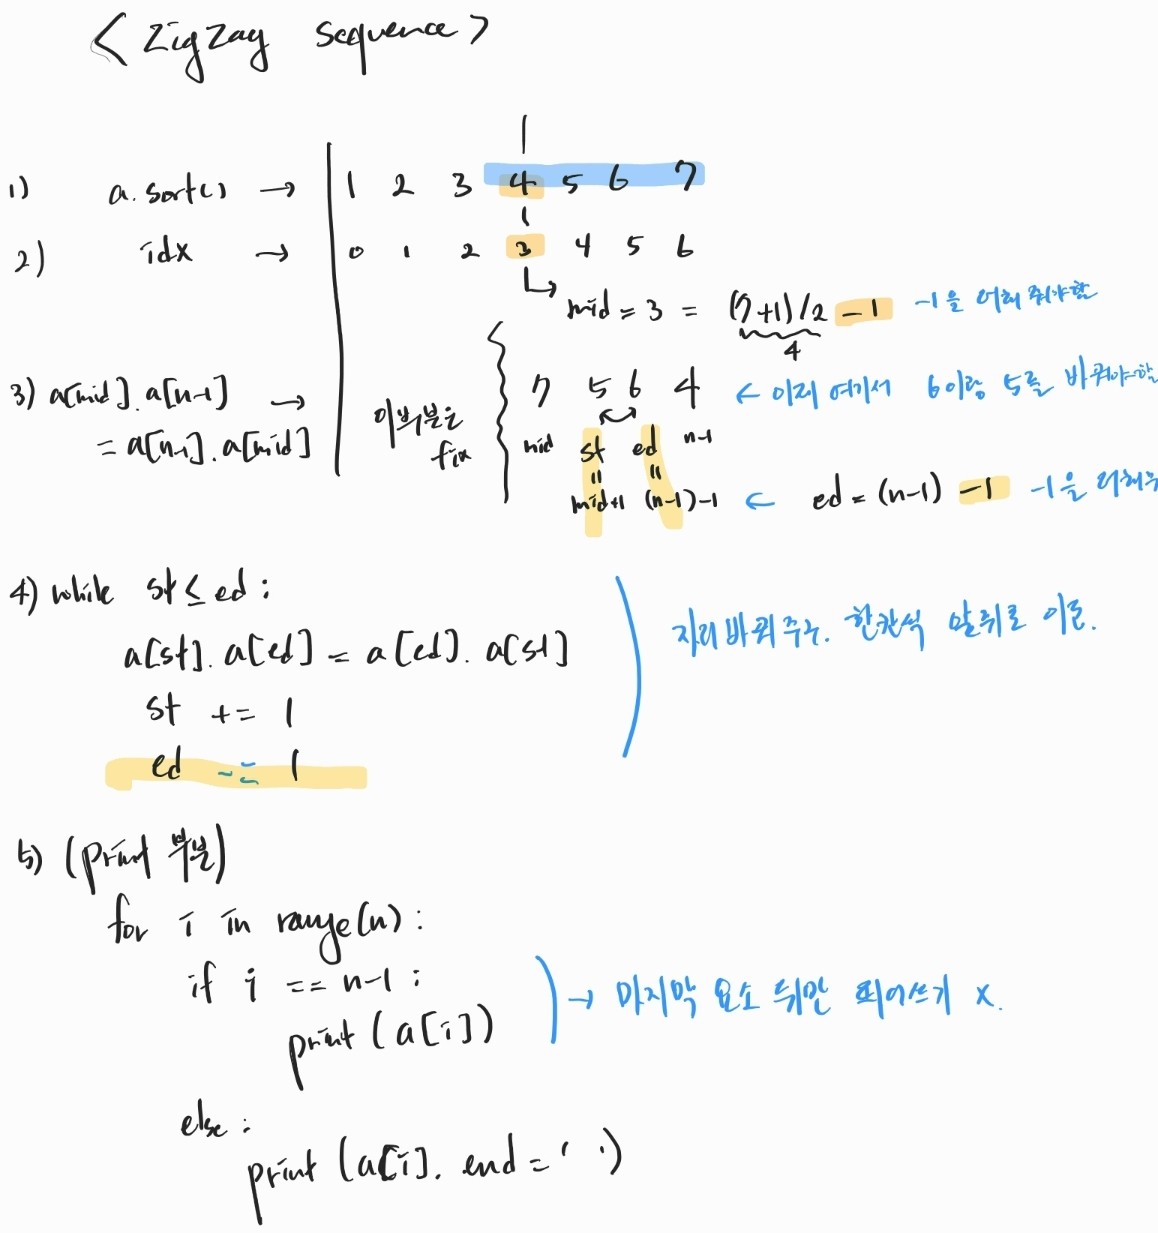 < Zig Zag sequence >
1) a. sort() → 1 2 3 4 5 6 7
2) idx → 0 1 2 3 4 5 6
mid = 3 = (7+1)/2 - 1 -1을 더해 줘야함
4
3) a[mid]. a[n-1] →
= a[n-1]. a[mid]
이 부분은
fix
7 5 6 4 ← 이제 여기서 6이랑 5를 바꿔야함
mid st ed n-1
= =
mid+1 (n-1)-1 ← ed = (n-1) -1 -1을 더해주
4) while st ≤ ed :
a[st]. a[ed] = a[ed]. a[st]
st += 1
ed -= 1
자리 바꿔주고. 한칸씩 앞뒤로 이동.
5) (print 부분)
for i in range(n) :
if i == n-1 :
print (a[i])
→ 마지막 요소 뒤만 띄어쓰기 x.
else :
print (a[i]. end = ' ')